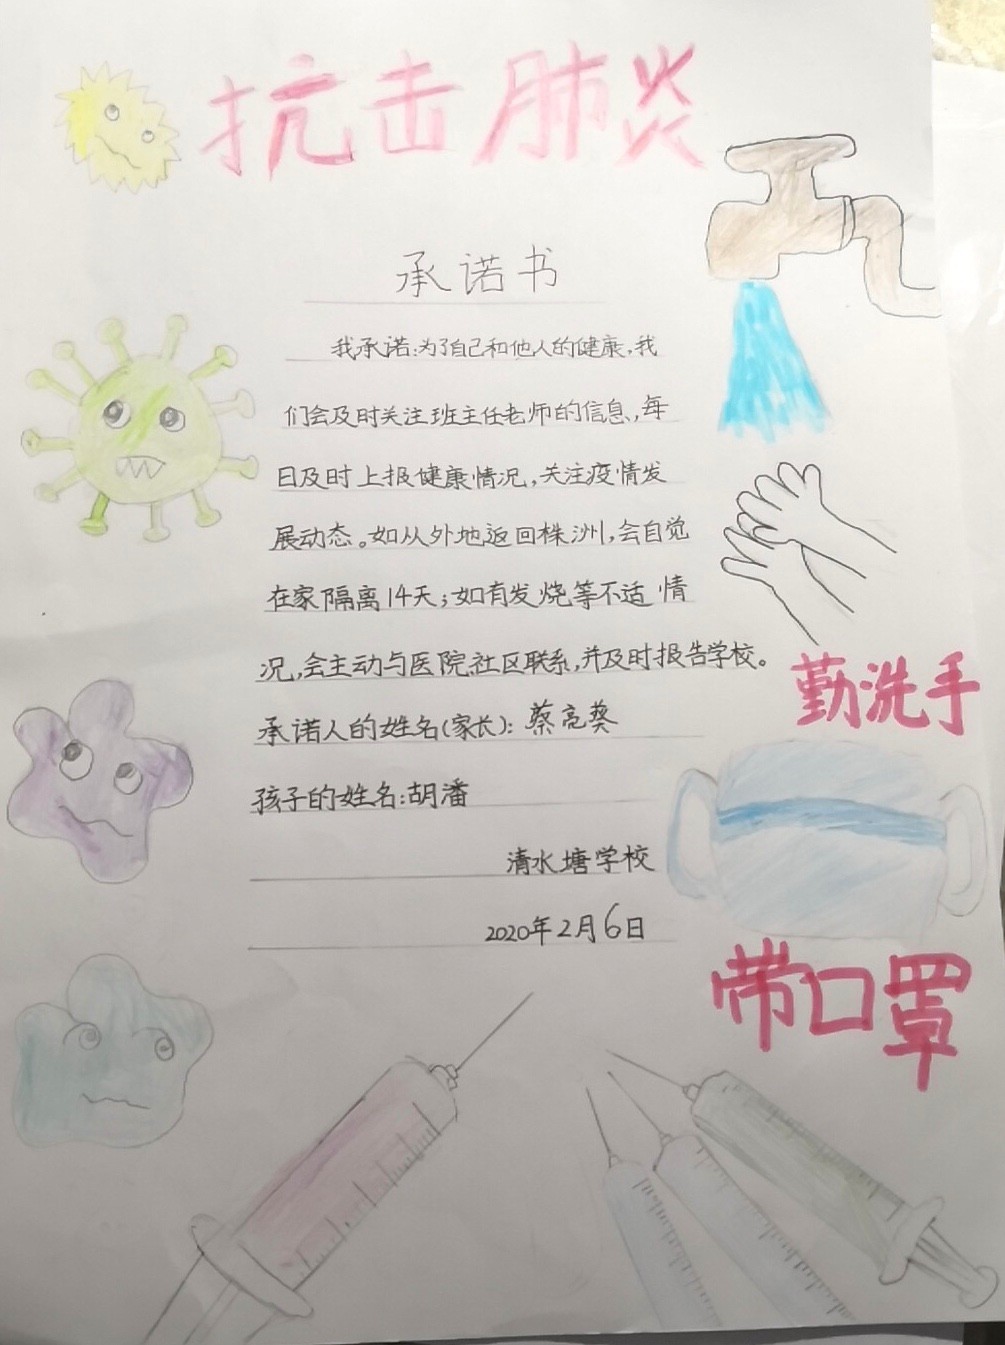 抗击肺炎
承诺书
我承诺:为了自己和他人的健康,我
们会及时关注班主任老师的信息,每
日及时上报健康情况,关注疫情发
展动态。如从外地返回株洲,会自觉
在家隔离14天;如有发烧等不适情
况,会主动与医院社区联系,并及时报告学校。
承诺人的姓名(家长):蔡亮葵
孩子的姓名:胡潘
清水塘学校
2020年2月6日
勤洗手
带口罩